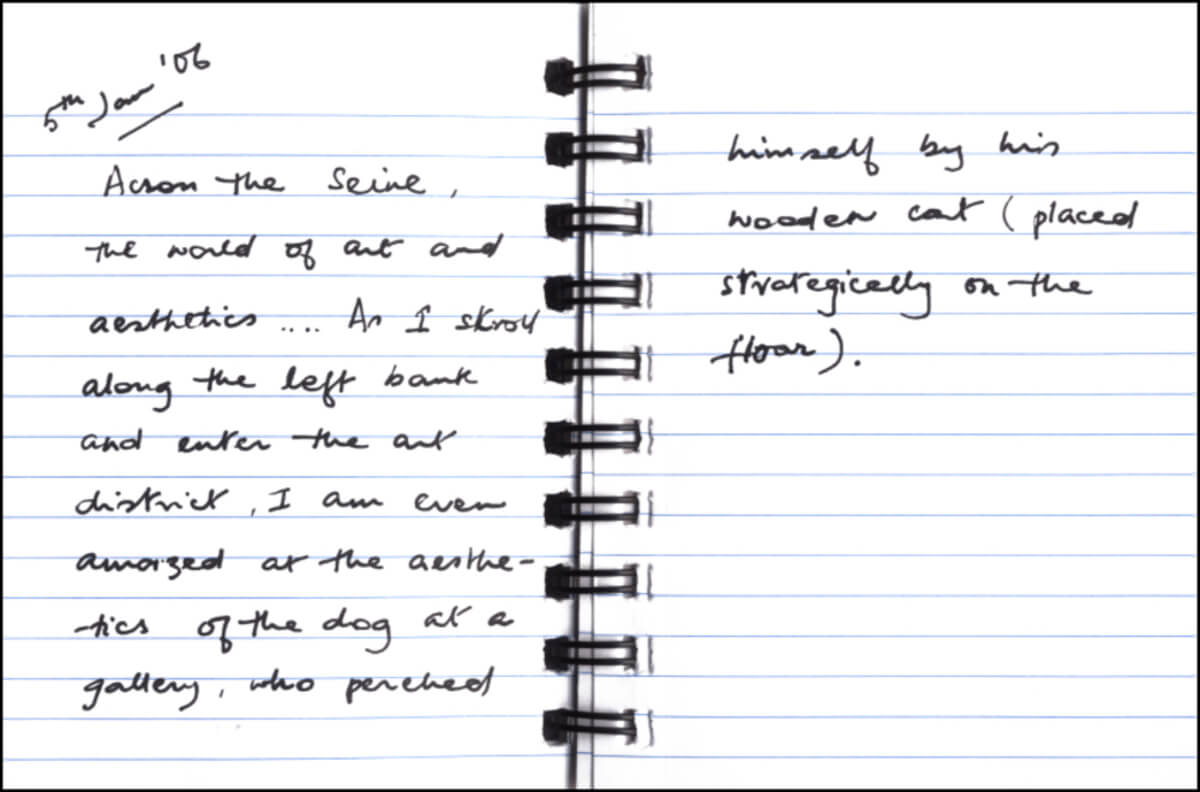 5th Jan '06
Across the Seine,
the world of art and
aesthetics .... As I stroll
along the left bank
and enter the art
district, I am even
amazed at the aesthe-
-tics of the dog at a
gallery, who perched
himself by his
wooden cart (placed
strategically on the
floor).